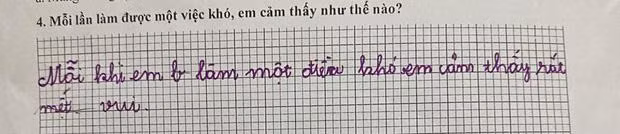 4. Mỗi lần làm được một việc khó, em cảm thấy như thế nào?
Mỗi khi em làm một điều khó em cảm thấy rất
mệt vui.